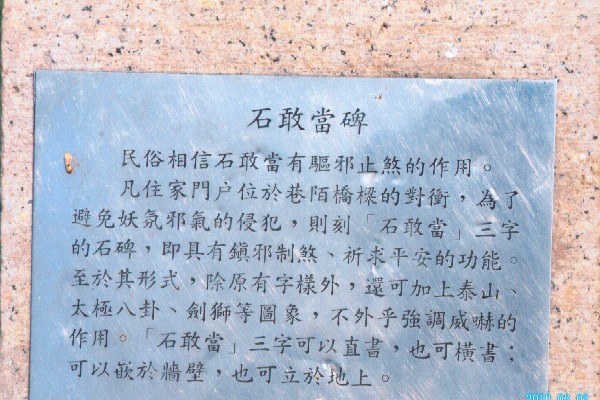 石敢當碑
民俗相信石敢當有驅邪止煞的作用。
凡住家門户位於巷陌橋樑的對衝，為了
避免妖氛邪氣的侵犯，則刻「石敢當」三字
的石碑，即具有鎮邪制煞、祈求平安的功能。
至於其形式，除原有字樣外，還可加上泰山、
太極八卦、劍獅等圖象，不外乎強調威嚇的
作用。「石敢當」三字可以直書，也可橫書；
可以嵌於牆壁，也可立於地上。